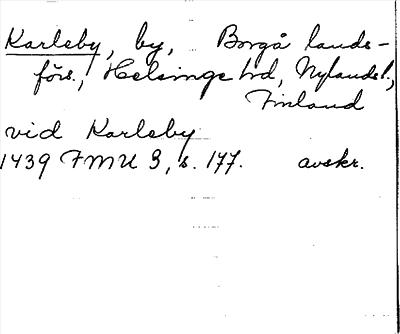 Karleby, by, Borgå lands-
förs., Helsinge hd, Nylands l.,
Finland
vid Karleby
1439 FMU 3, s. 177. avskr.